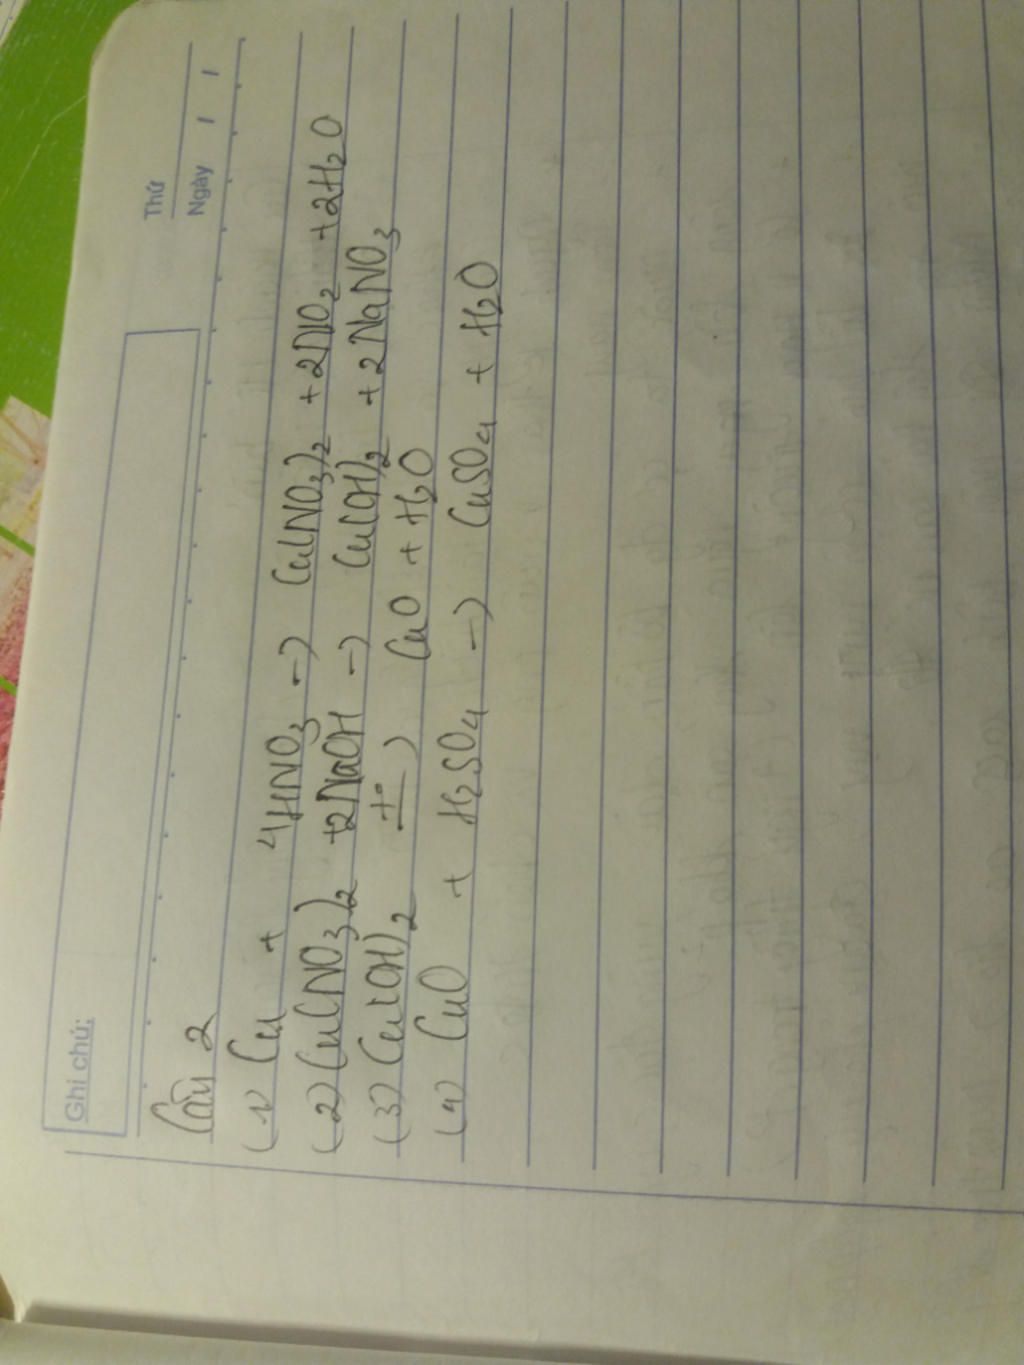 Ghi chú:
Thứ
Ngày / /
Câu 2
(1) Cu + 4HNO₃ → Cu(NO₃)₂ + 2NO₂ + 2H₂O
(2) Cu(NO₃)₂ + 2NaOH → Cu(OH)₂ + 2NaNO₃
(3) Cu(OH)₂ t° → CuO + H₂O
(4) CuO + H₂SO₄ → CuSO₄ + H₂O